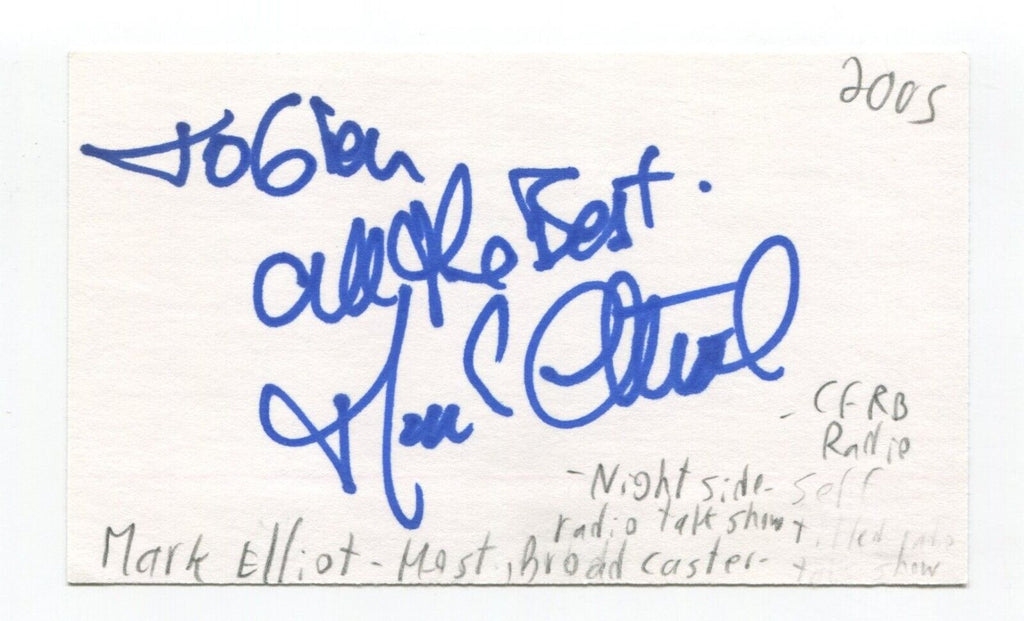 2005
To Gian
All the Best.
Mark Elliot
- CFRB
Radio
- Nightside - self
radio talk show titled radio
Mark Elliot - Host, Broadcaster - talk show